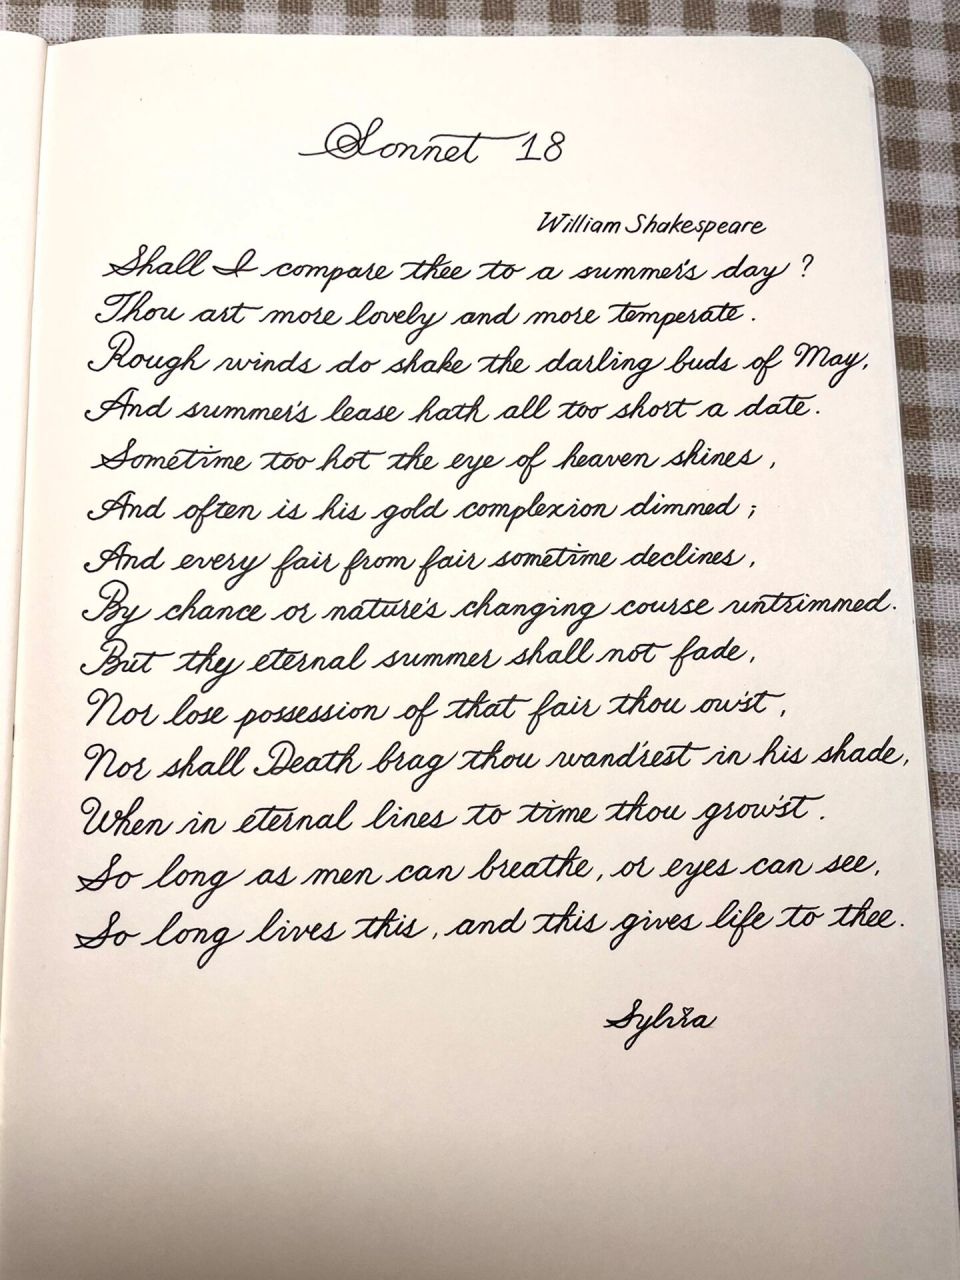 Sonnet 18
William Shakespeare
Shall I compare thee to a summer's day ?
Thou art more lovely and more temperate.
Rough winds do shake the darling buds of May,
And summer's lease hath all too short a date.
Sometime too hot the eye of heaven shines,
And often is his gold complexion dimmed ;
And every fair from fair sometime declines,
By chance or nature's changing course untrimmed.
But thy eternal summer shall not fade,
Nor lose possession of that fair thou ow'st,
Nor shall Death brag thou wand'rest in his shade,
When in eternal lines to time thou grow'st.
So long as men can breathe, or eyes can see,
So long lives this, and this gives life to thee.
Sylvia